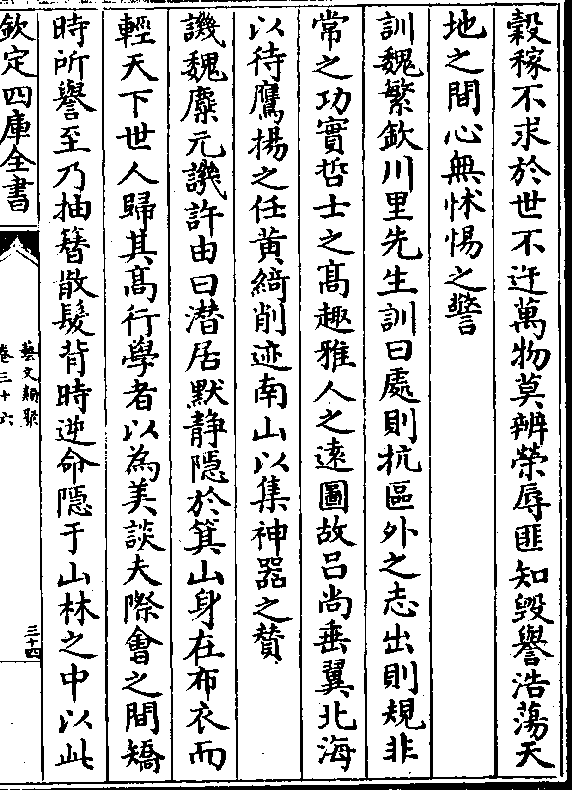 穀稼不求於世不迕萬物莫辨榮辱匪知毀譽浩蕩天
地之間心無怵惕之警
訓魏繁欽川里先生訓曰處則抗區外之志出則規非
常之功實哲士之髙趣雅人之逺圖故吕尚垂翼北海
以待鷹揚之任黄綺削迹南山以集神器之賛
譏魏麋元譏許由曰潜居默静隠於箕山身在布衣而
輕天下世人歸其髙行學者以為美談夫際會之間矯
時所譽至乃抽簪散髮背時逆命隠于山林之中以此
欽定四庫全書
藝文類聚
卷三十六
三十四